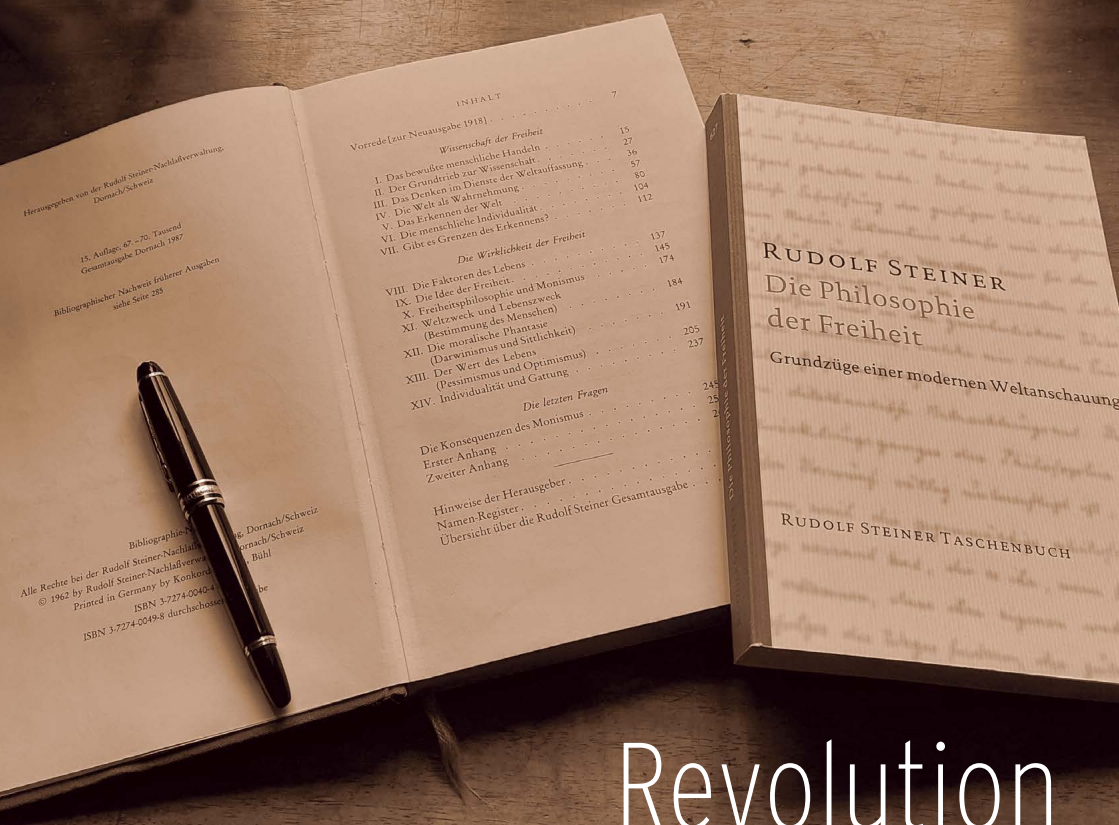 Herausgegeben von der Rudolf Steiner-Nachlaßverwaltung,
Dornach/Schweiz
15. Auflage, 67.–70. Tausend
Gesamtausgabe Dornach 1987
Bibliographischer Nachweis früherer Ausgaben
siehe Seite 285
Dornach/Schweiz
Alle Rechte bei der Rudolf
© 1962 by Rudolf
Printed in Germany by Bühl
ISBN 3-7274-0040-4
ISBN 3-7274-0049-8
INHALT
Vorrede [zur Neuausgabe 1918] . . . . . . . . . 7
Wissenschaft der Freiheit
I. Das bewußte menschliche Handeln . . . . . . 15
II. Der Grundtrieb zur Wissenschaft . . . . . . 27
III. Das Denken im Dienste der Weltauffassung . . . . 36
IV. Die Welt als Wahrnehmung . . . . . . 57
V. Das Erkennen der Welt . . . . . . 80
VI. Die menschliche Individualität . . . . . . 104
VII. Gibt es Grenzen des Erkennens? . . . . . . 112
Die Wirklichkeit der Freiheit
VIII. Die Faktoren des Lebens . . . . . . 137
IX. Die Idee der Freiheit . . . . . . 145
X. Freiheitsphilosophie und Monismus . . . . . . 174
XI. Weltzweck und Lebenszweck
(Bestimmung des Menschen) . . . . . . 184
XII. Die moralische Phantasie
(Darwinismus und Sittlichkeit) . . . . . . 191
XIII. Der Wert des Lebens
(Pessimismus und Optimismus) . . . . . . 205
XIV. Individualität und Gattung . . . . . . 237
Die letzten Fragen
Die Konsequenzen des Monismus . . . . . .
Erster Anhang . . . . . .
Zweiter Anhang . . . . . .
Hinweise der Herausgeber . . . . . .
Namen-Register . . . . . .
Übersicht über die Rudolf Steiner Gesamtausgabe . . . .
Die Philosophie der Freiheit
RUDOLF STEINER
Die Philosophie
der Freiheit
Grundzüge einer modernen Weltanschauung
RUDOLF STEINER TASCHENBUCH
Revolution